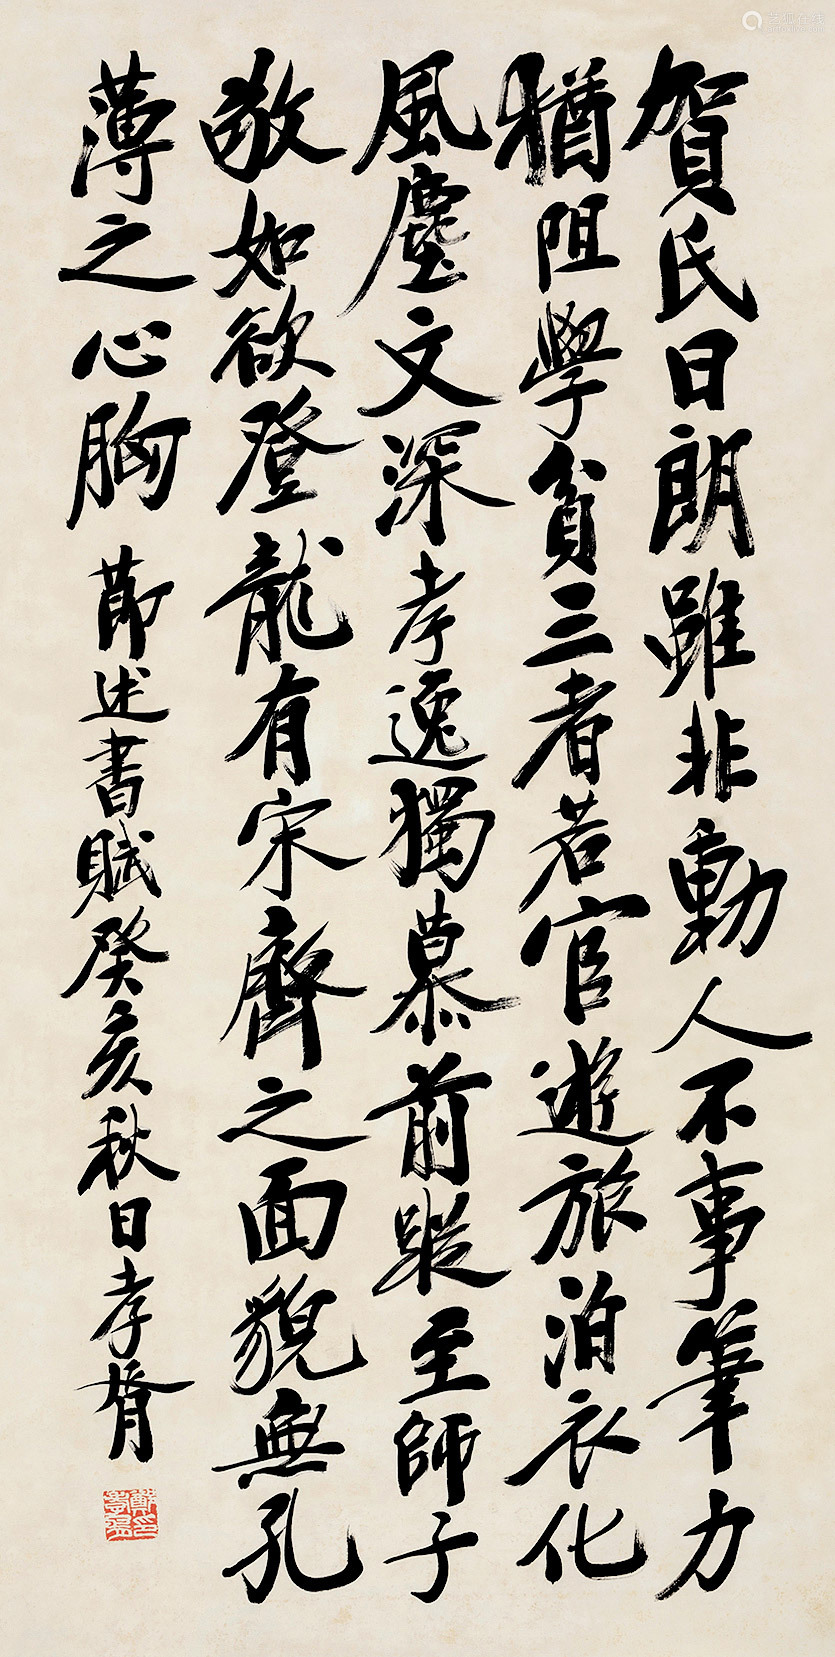 賀氏日朗雖非動人不事筆力
猶阻學貧三者若官遊旅泊衣化
風塵文深孝逸獨慕前蹤至師子
敬如欲登龍有宋齊之面貌無孔
薄之心胸
節述書賦癸亥秋日孝胥